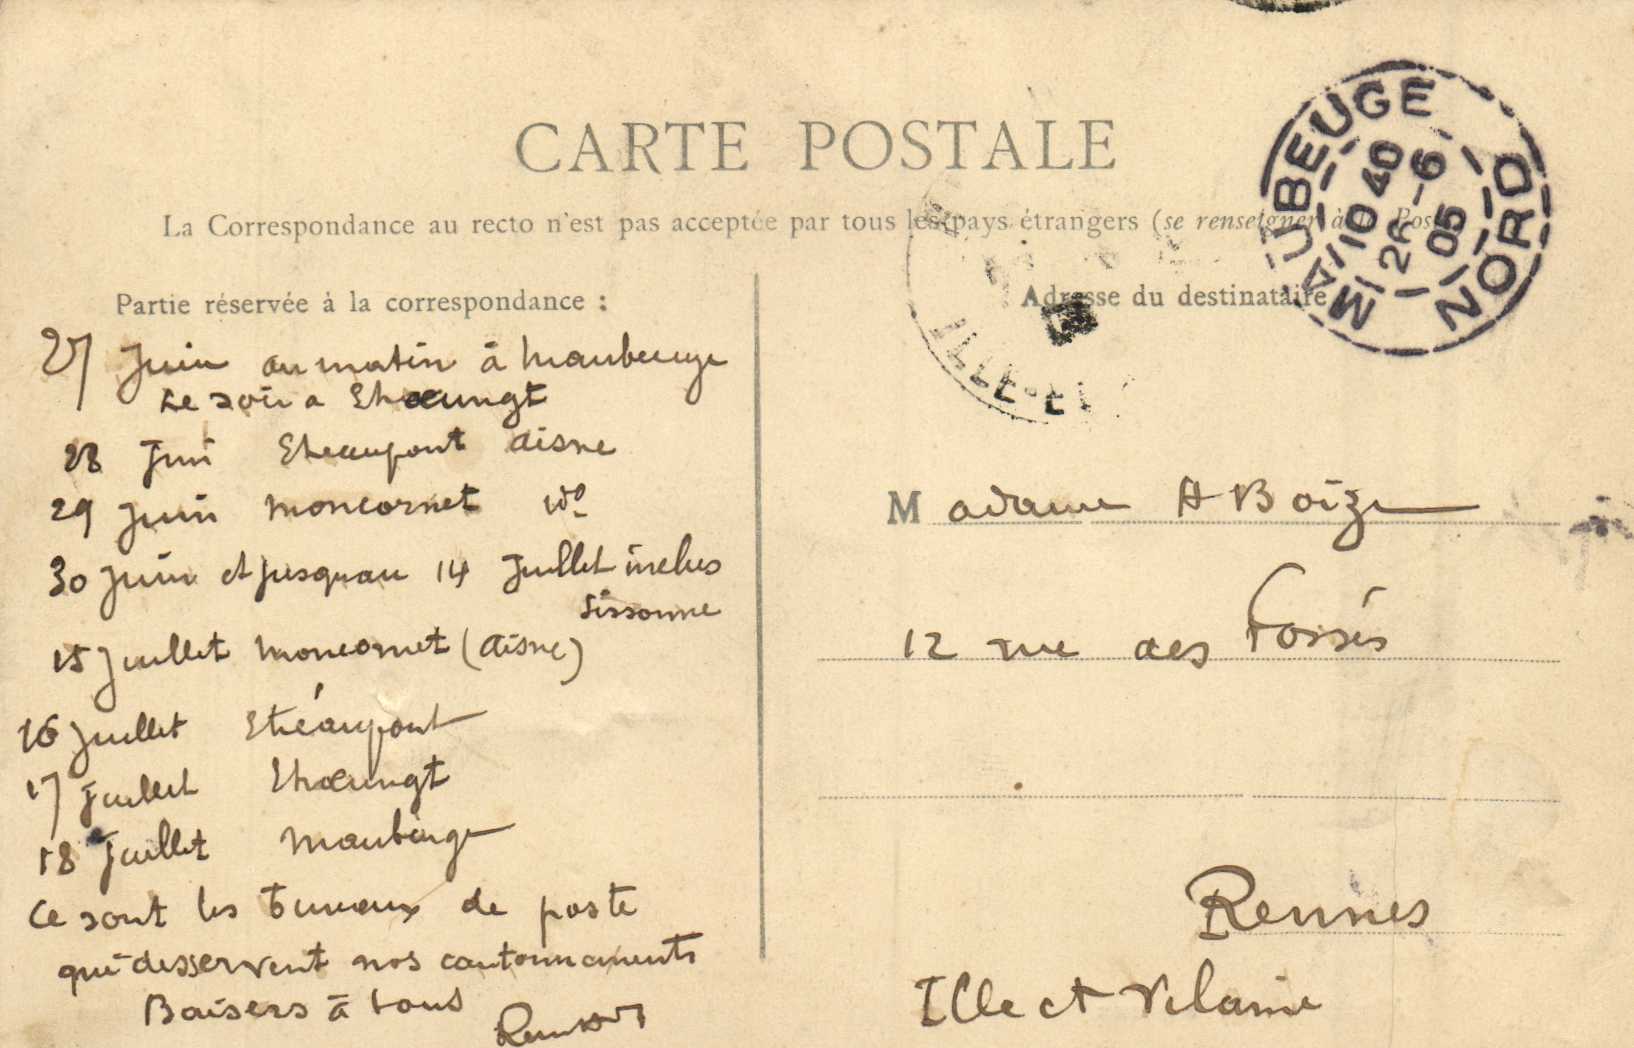 CARTE POSTALE
La Correspondance au recto n'est pas acceptée par tous les pays étrangers (se renseigner à la Pos
Partie réservée à la correspondance :
27 Juin au matin à Maubeuge
Le soir a Etrœungt
28 Juin Etreaupont Aisne
29 Juin Moncornet id°
30 Juin et jusquau 14 Juillet inclus
Sissonne
15 Juillet Moncornet (Aisne)
16 Juillet Etréaupont
17 Juillet Etrœungt
18 Juillet Maubeuge
Ce sont les bureaux de poste
qui desservent nos cantonnements
Baisers à tous
Adresse du destinataire
Madame A Boize
12 rue des Fossés
Rennes
Ille et Vilaine
MAUBEUGE
10 40
26 -6
05
NORD
ILLE-ET